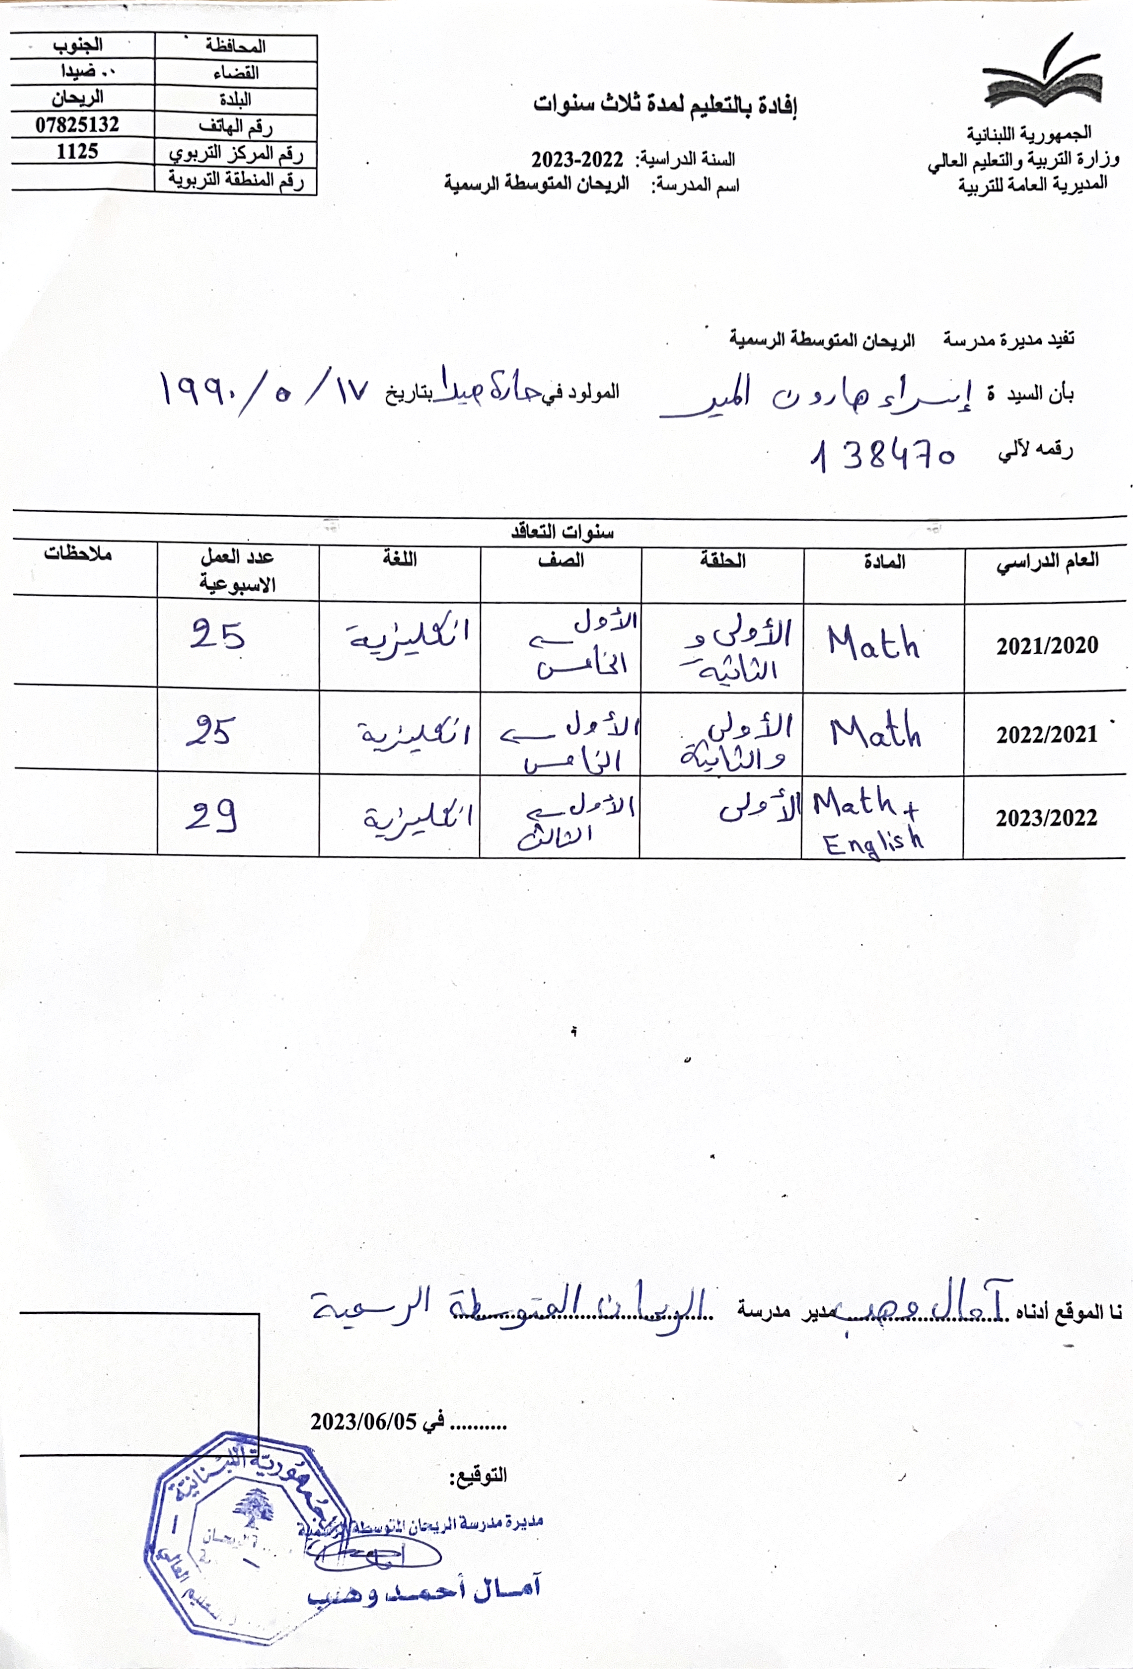 الجمهورية اللبنانية
وزارة التربية والتعليم العالي
المديرية العامة للتربية
إفادة بالتعليم لمدة ثلاث سنوات
السنة الدراسية: 2022-2023
اسم المدرسة: الريحان المتوسطة الرسمية
المحافظة الجنوب
القضاء صيدا
البلدة الريحان
رقم الهاتف 07825132
رقم المركز التربوي 1125
رقم المنطقة التربوية
تفيد مديرة مدرسة الريحان المتوسطة الرسمية
بأن السيد ة إسراء هارون المير المولود في حارة صيدا بتاريخ ١٧ / ٥ / ١٩٩٠
رقمه لآلي 138470
سنوات التعاقد
العام الدراسي المادة الحلقة الصف اللغة عدد العمل الاسبوعية ملاحظات
2021/2020 Math الأولى و الثانية الأول ← الخامس انكليزية 25
2022/2021 Math الأولى والثانية الأول ← الخامس انكليزية 25
2023/2022 Math + English الأولى الأول ← الثالث انكليزية 29
نا الموقع أدناه آمال وهب مدير مدرسة الريحان المتوسطة الرسمية
.......... في 2023/06/05
التوقيع:
مديرة مدرسة الريحان المتوسطة الرسمية
آمـال أحمـد وهـب
الجمهورية اللبنانية